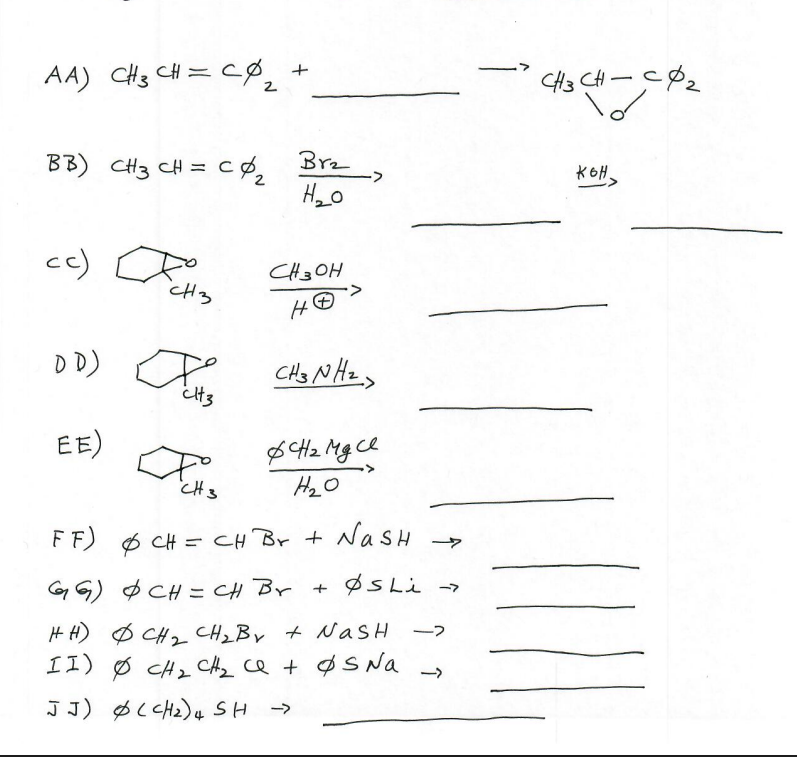 AA) CH3 CH = CØ2 + ________ → CH3 CH - CØ2
O
BB) CH3 CH = CØ2 Br2 → ________ KOH → ________
H2O
CC) O CH3 CH3OH → ________
H⊕
DD) O CH3 CH3NH2 → ________
EE) O CH3 ØCH2MgCl → ________
H2O
FF) Ø CH = CH Br + NaSH → ________
GG) Ø CH = CH Br + ØSLi → ________
HH) Ø CH2 CH2Br + NaSH → ________
II) Ø CH2 CH2 Cl + ØSNa → ________
JJ) Ø(CH2)4 SH → ________